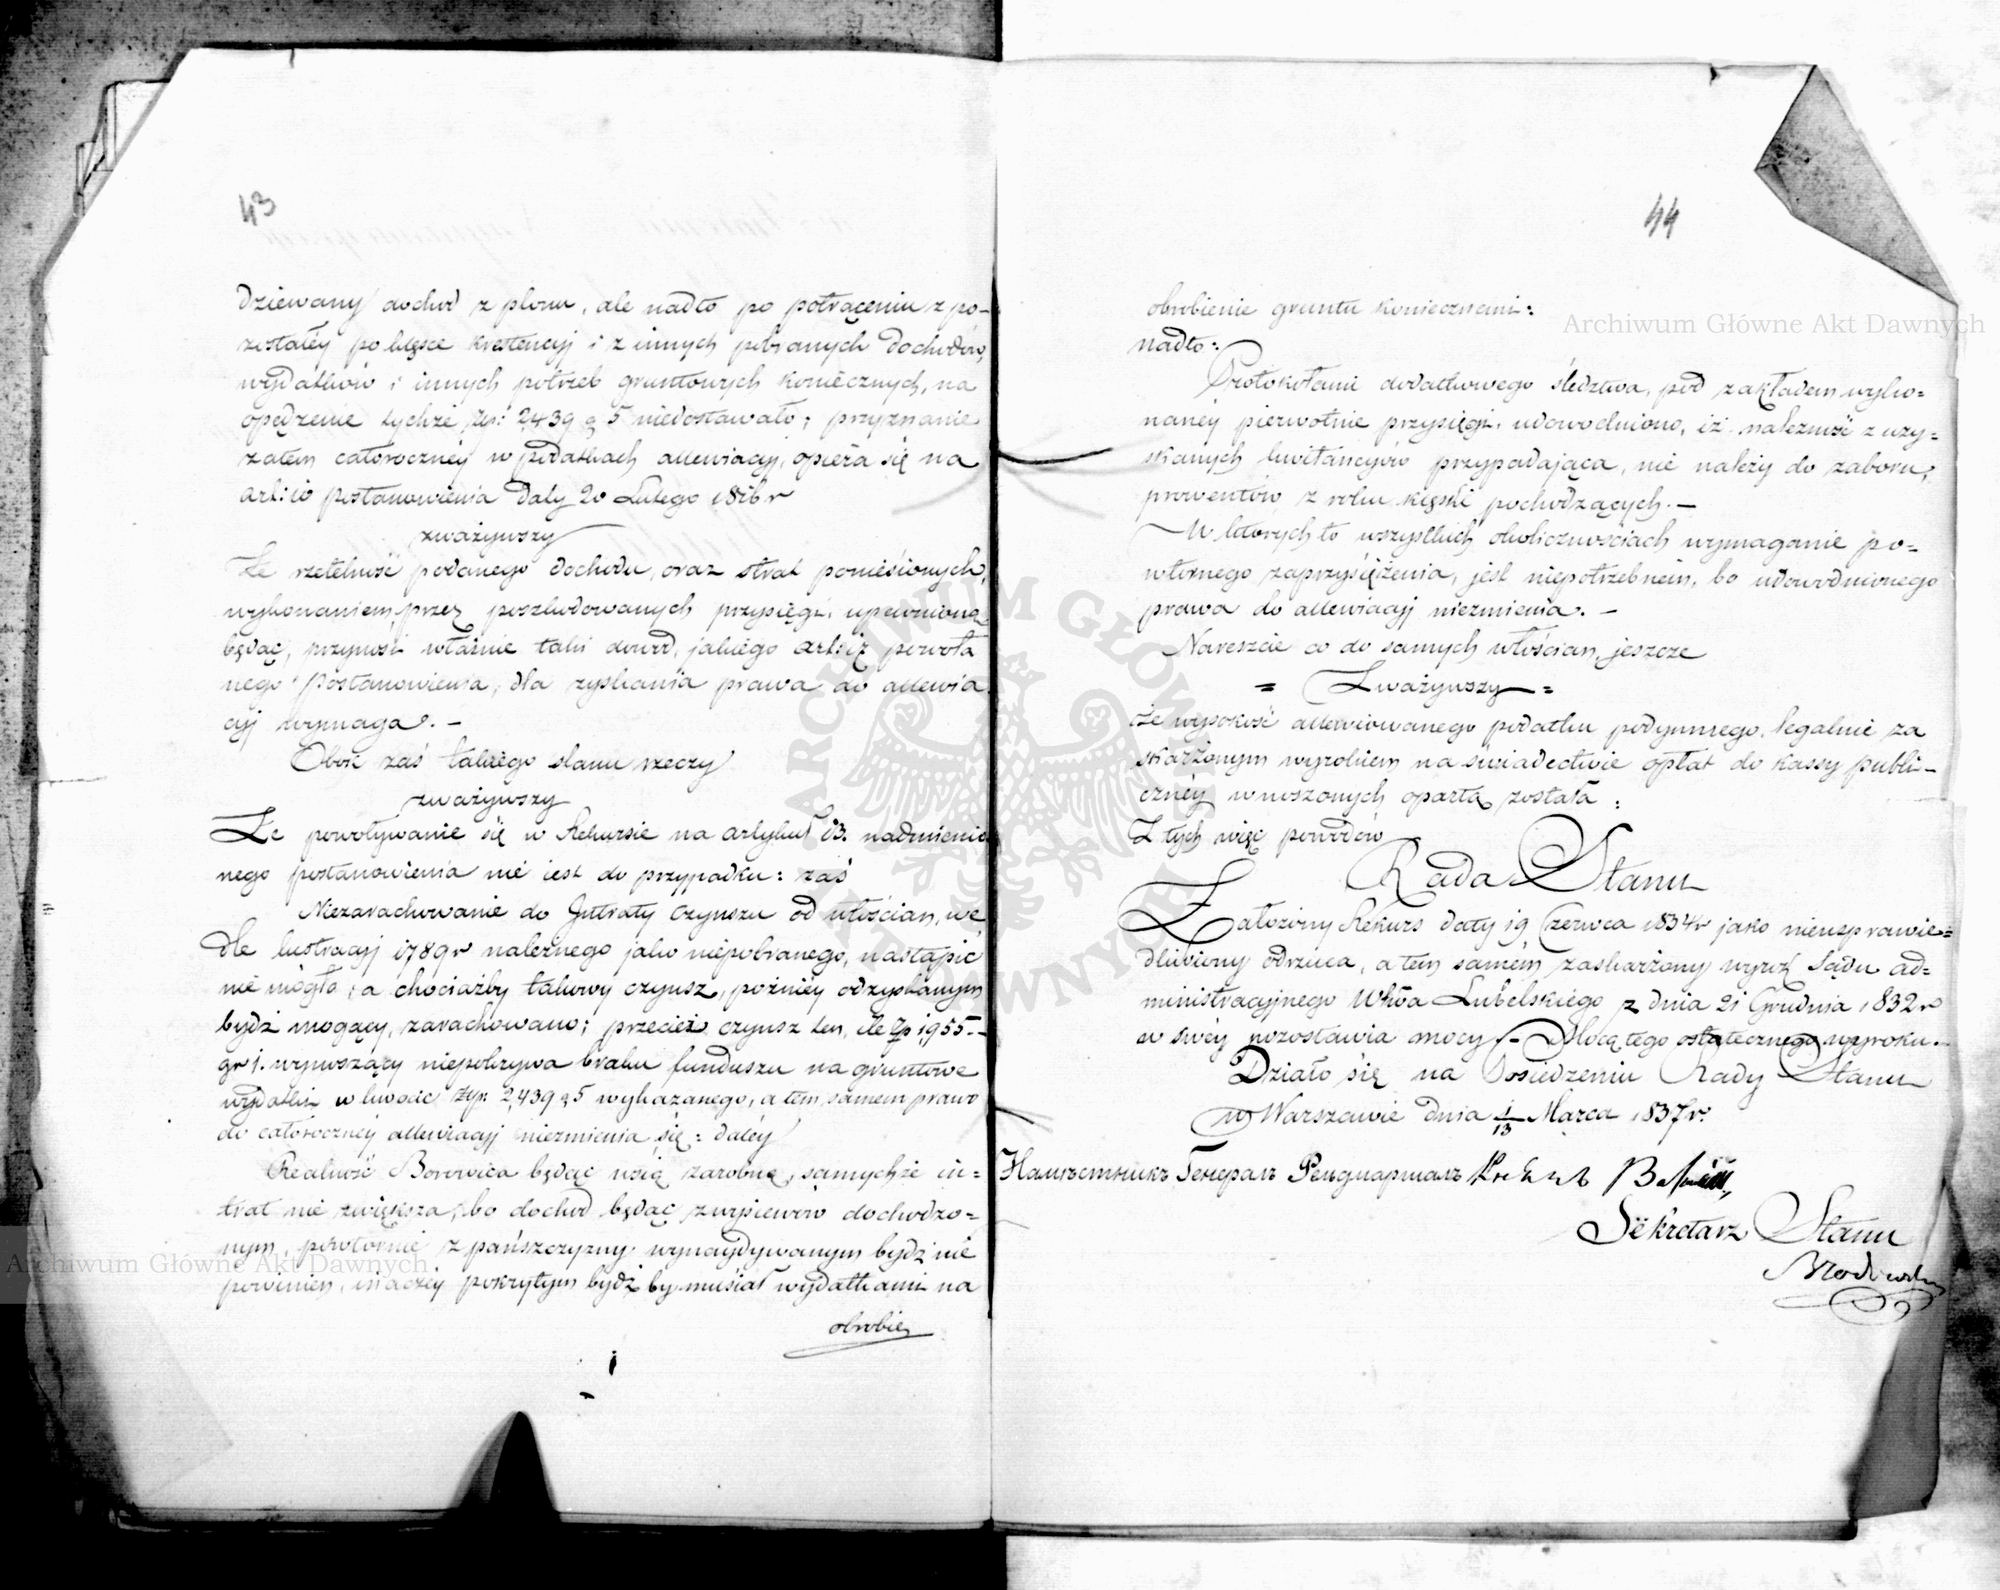 43
dziewany dochod z plonu, ale nadto po potrąceniu z po-
zostałéy po klęsce krestencyj i z innych pobranych dochodów,
wydatków i innych potrzeb gruntowych koniecznych, na
opędzenie tychże Zp: 2,439 g 5 niedostawało; przyznanie
zatem całorocznéy w podatkach allewiacyj, opiera się na
art: 10 postanowienia daty 20 Lutego 1816 r
zważywszy
Że rzetelność podanego dochodu, oraz strat poniesionych,
wykonaniem przez poszkodowanych przysięgi, upewnioną
będąc, przynosi właśnie taki dowód, jakiego art: 12 powoła
nego Postanowienia, dla zyskania prawa do allewia
cyj wymaga. –
Obok zaś takiego stanu rzeczy
zważywszy
Że powoływanie się w Rekursie na artykuł 13. nadmienio
nego postanowienia nie jest do przypadku: zaś
Niezarachowanie do Intraty Czynszu od włościan, we
dle lustracyj 1789 r należnego jako niepobranego, nastąpić
nie mogło, a chociażby takowy czynsz, późniéy odzyskanym
bydź mogący, zarachowano; przecież czynsz ten, ile Zp 1,955.-
gr 1. wynoszący niepokrywa braku funduszu na gruntowe
wydatki w kwocie Zp: 2,439 g 5 wykazanego, a tem samem prawo
do całorocznéy allewiacyj niezmienia się: daléy
Realność Borowica będąc wsią zarobną, samychże in-
trat nie zwiększa, bo dochod będąc z wysiewów dochodzo-
nym, powtórnie z pańszczyzny wynaydywanym bydź nie
powinien, inaczéy pokrytym bydź by musiał wydatkami na
obrobie
44
obrobienie gruntu koniecznemi:
nadto:
Protokołami dodatkowego śledztwa, pod zakładem wyko-
nanéy pierwotnie przysięgi, udowodniono, iż należność z uzy-
skanych kwitancyów przypadająca, nie należy do zaboru,
prowentów z roku klęski pochodzących. –
W których to wszystkich okolicznościach wymaganie po-
wtórnego zaprzysiężenia, jest niepotrzebném, bo udowodnionego
prawa do allewiacyj niezmienia. –
Nareszcie co do samych włościan, jeszcze
= Zważywszy =
Że wysokość allewiowanego podatku podymnego, legalnie za
skarżonym wyrokiem na świadectwie opłat do kassy publi-
cznéy wnoszonych opartą została:
Z tych więc powodów
Rada Stanu
Założony Rekurs daty 19 Czerwca 1834 r jako nieusprawie-
dliwiony odrzuca, a tem samém zaskarżony wyrok Sądu ad-
ministracyjnego Wtwa Lubelskiego z dnia 21 Grudnia 1832 r
w swéy pozostawia mocy. – Mocą tego ostatecznego wyroku. –
Działo się na Posiedzeniu Rady Stanu
w Warszawie dnia 1/13 Marca 1837 r:
Намѣстникъ Генералъ Фельдмаршалъ
Sekretarz Stanu
Archiwum Główne Akt Dawnych
Archiwum Główne Akt Dawnych